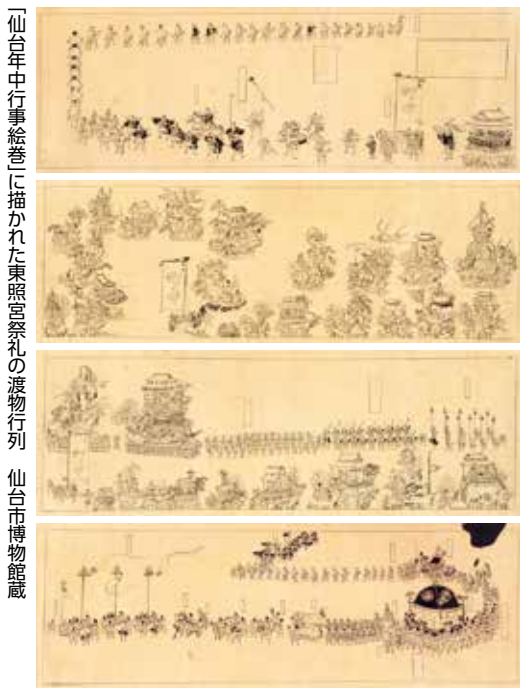 「仙台年中行事絵巻」に描かれた東照宮祭礼の渡物行列　仙台市博物館蔵